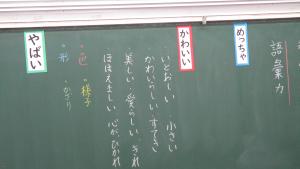 語彙力
めっちゃ
かわいい
・いとおしい ・小さい
かわいらしい・すてき
美しい・愛らしい・きれ
ほほえましい 心がひかれ
・色 ・様子
・形 ・かざり
やばい